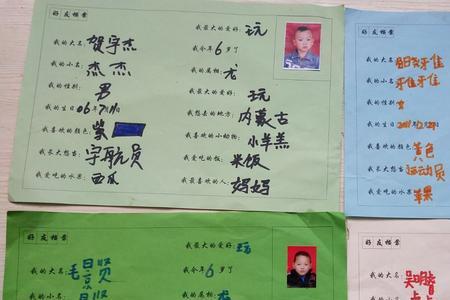 好友档案
我的大名: 贺宇杰
我的小名: 杰杰
我的性别: 男
我的生日 06年7月1日
我喜欢的颜色: 紫
我长大想当: 宇航员
我爱吃的水果: 西瓜
我最大的爱好: 玩
我今年 6 岁了
我的属相: 龙
我最大的爱好: 玩
我想去的地方: 内蒙古
我喜欢的小动物: 小羊羔
我爱吃的饭: 米饭
我最喜欢的人: 妈妈
好友档案
我的大名:
我的小名:
我的性别: 女
我的生日
我喜欢的颜色: 黄色
我长大想当: 运动员
我爱吃的水果: 苹果
好友档案
我的大名: 毛
我的小名:
我最大的爱好: 玩
我今年 6 岁了
我的属相: 龙
好友档案
我的大名: 吴明
我的小名: